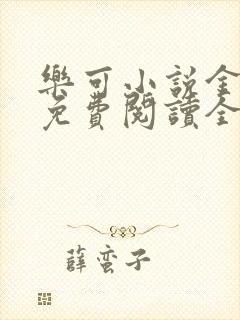 樂可小說全
免費閱讀全
薛蠻子